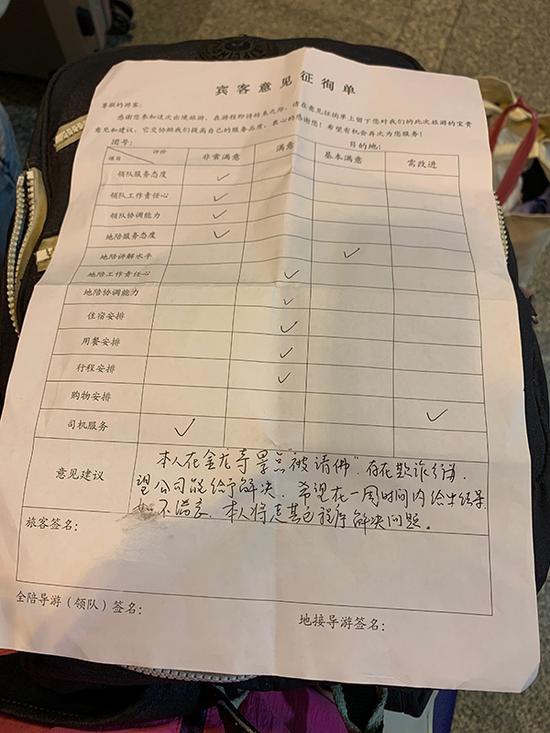 宾客意见征询单
尊敬的游客:
感谢您参加这次出境旅游,在游程即将结束之际,请在意见征询单上留下您对我们的此次旅游的宝贵
意见和建议,它交协助我们提高自己的服务品质,衷心的感谢您!希望有机会再次为您服务!
团号: 目的地:
评价 项目 非常满意 满意 基本满意 需改进
领队服务态度 ✓
领队工作责任心 ✓
领队协调能力 ✓
地陪服务态度 ✓
地陪讲解水平 ✓
地陪工作责任心 ✓
地陪协调能力 ✓
住宿安排 ✓
用餐安排 ✓
行程安排 ✓
购物安排 ✓
司机服务 ✓
意见建议
本人在金龙寺景点"被请佛",存在欺诈行为,
望公司能给予解决。希望在一周时间内给出结果,
如不满意,本人将走其他程序解决问题。
旅客签名:
全陪导游(领队)签名:
地接导游签名: